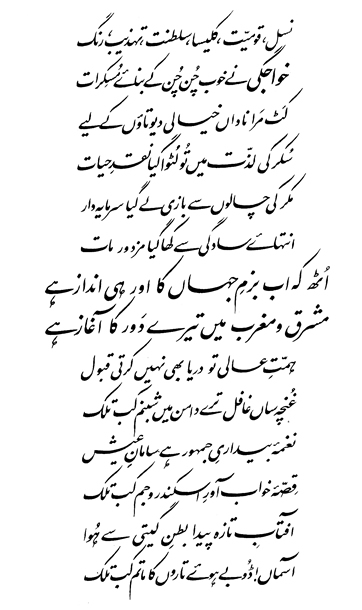 نسل، قومیّت، کلیسا، سلطنت، تہذیب، رنگ
خواجگی نے خوب چُن چُن کے بنائے مُسکِرات
کٹ مَرا ناداں خیالی دیوتاؤں کے لیے
سُکر کی لذّت میں تُو لُٹوا گیا نقدِ حیات
مکر کی چالوں سے بازی لے گیا سرمایہ دار
انتہائے سادگی سے کھا گیا مزدور مات
اُٹھ کہ اب بزمِ جہاں کا اور ہی انداز ہے
مشرق و مغرب میں تیرے دَور کا آغاز ہے
ہمّتِ عالی تو دریا بھی نہیں کرتی قبول
غُنچہ ساں غافل ترے دامن میں شبنم کب تلک
نغمۂ بیداریِ جمہور ہے سامانِ عیش
قصّۂ خواب آورِ اسکندر و جم کب تلک
آفتابِ تازہ پیدا بطنِ گیتی سے ہُوا
آسماں! ڈُوبے ہوئے تاروں کا ماتم کب تلک